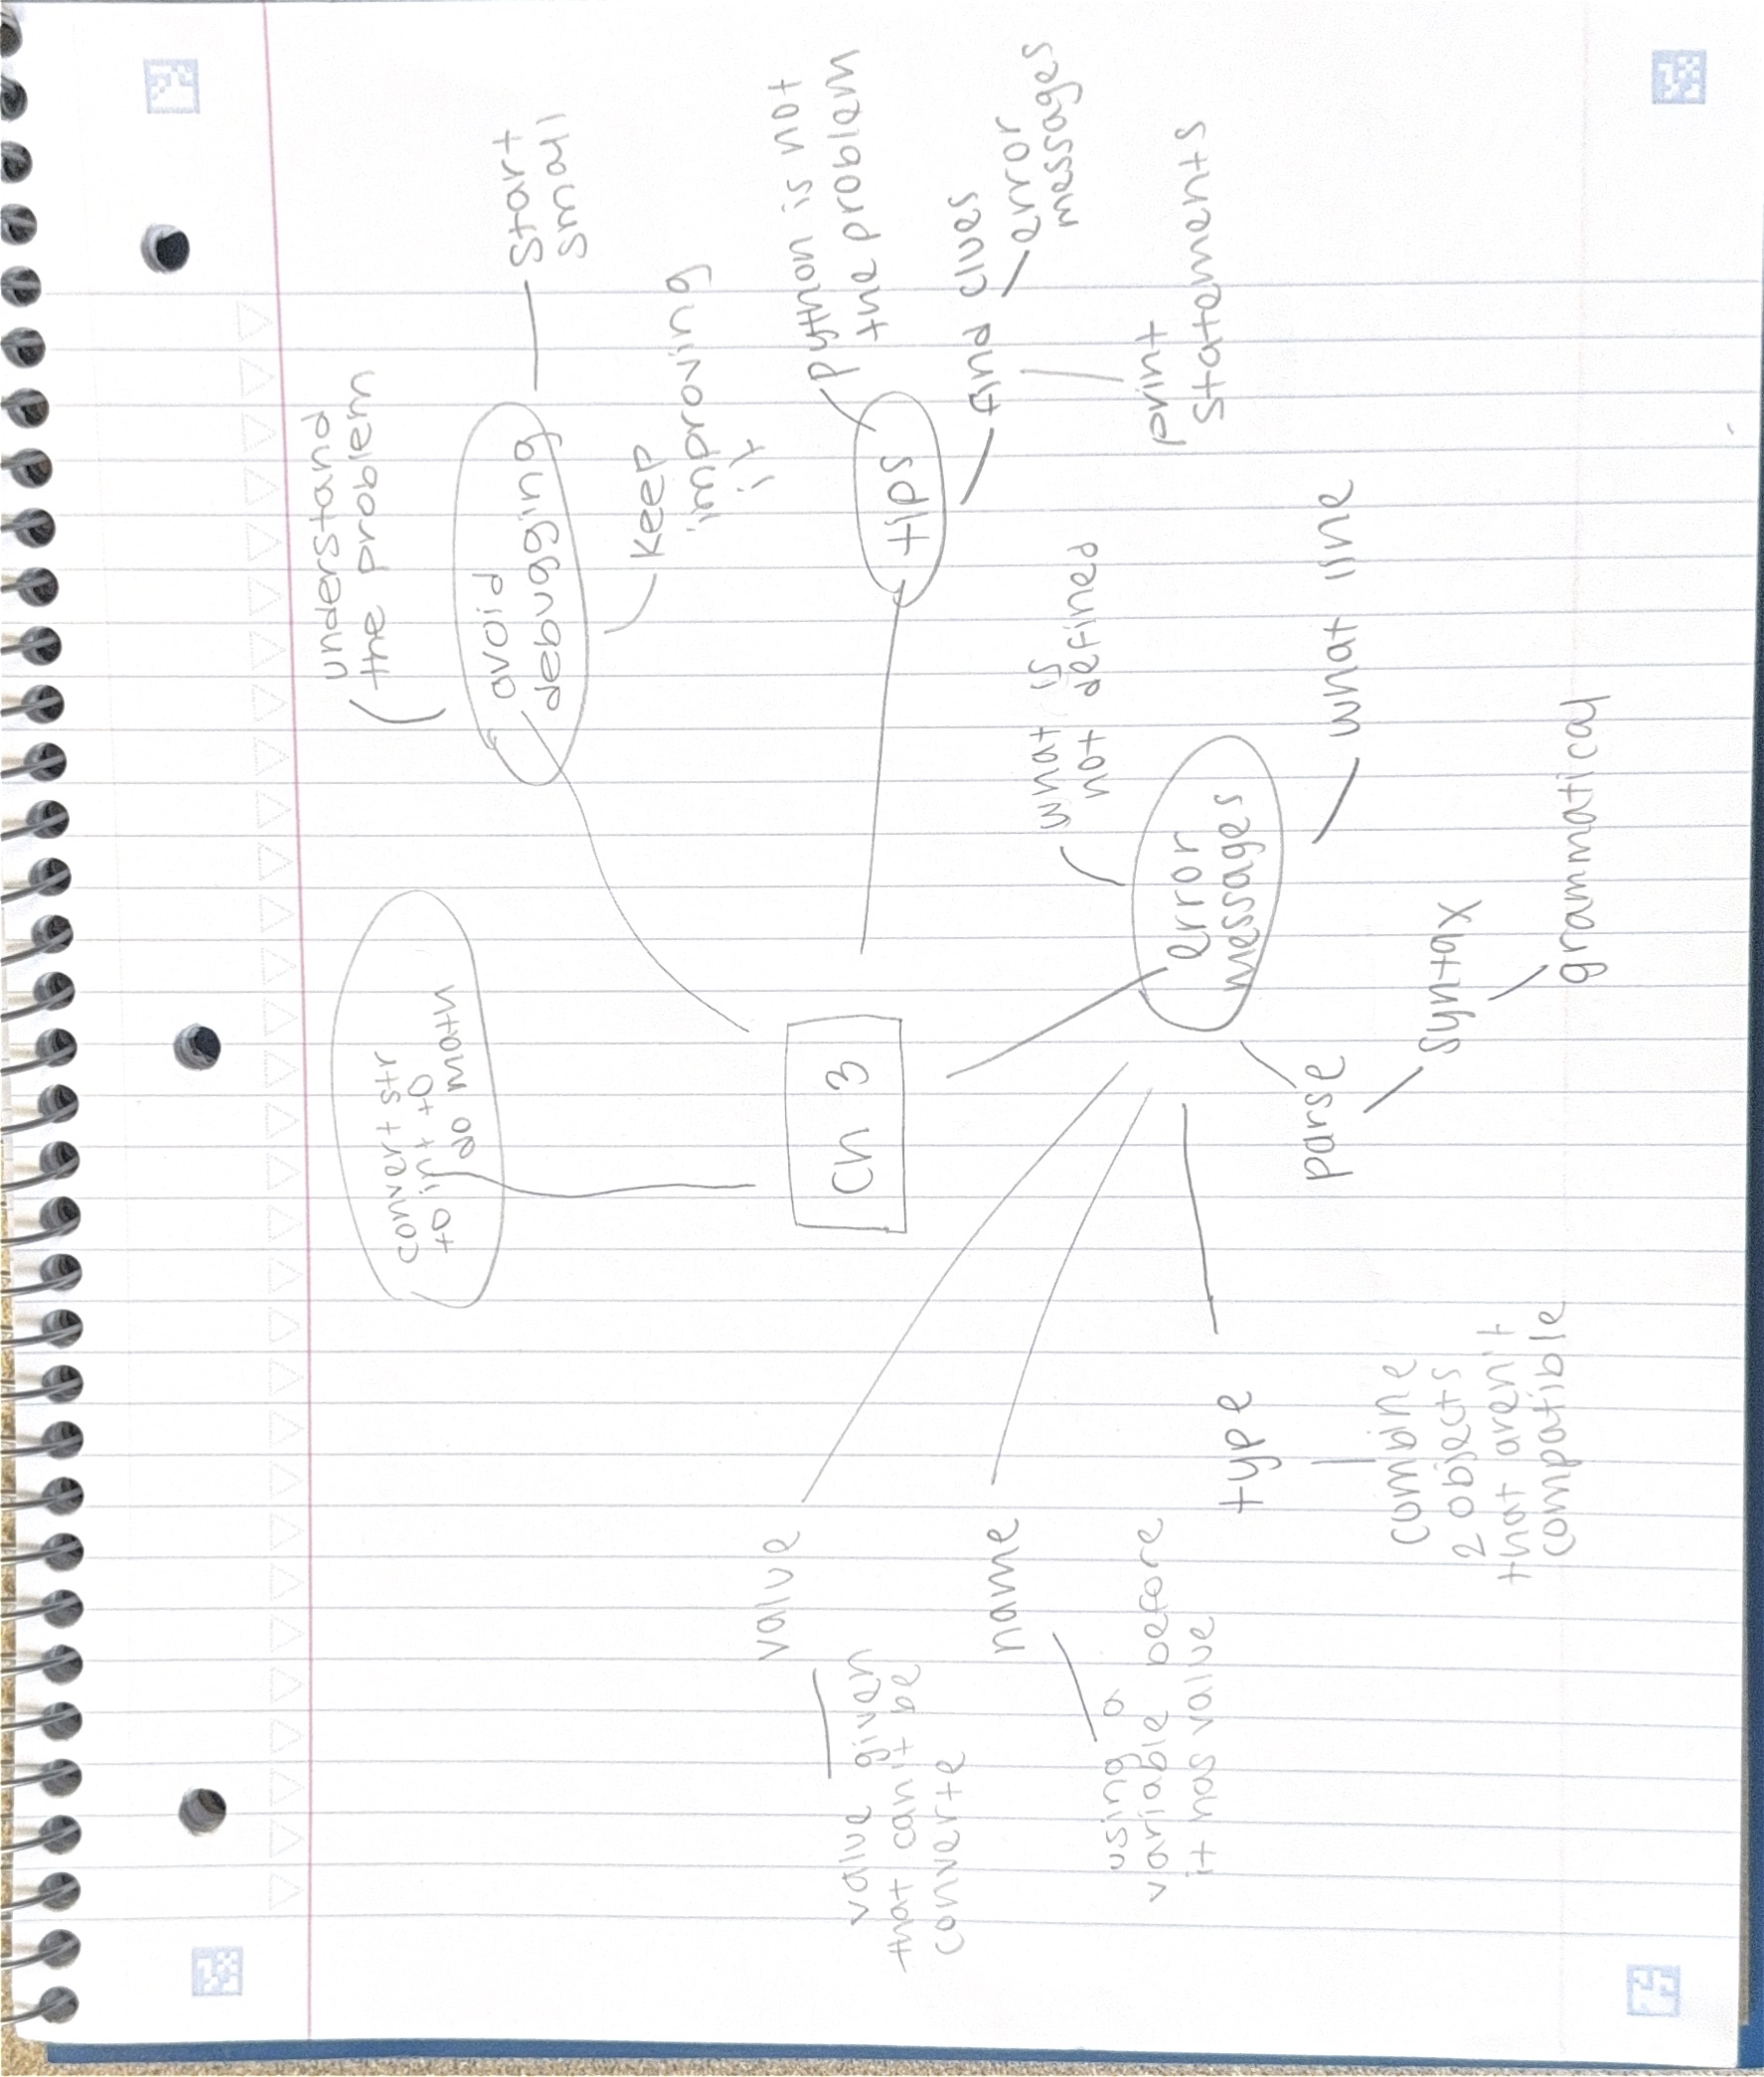 understand
the problem
avoid
debugging
start
small
keep
improving
it
convert str
to int to
do math
Ch 3
tips
python is not
the problem
find clues
error
messages
print
statements
error
messages
what is
not defined
what line
parse
syntax
grammatical
type
combine
2 objects
that aren't
compatible
name
using a
variable before
it has value
value
value given
that can't be
converte